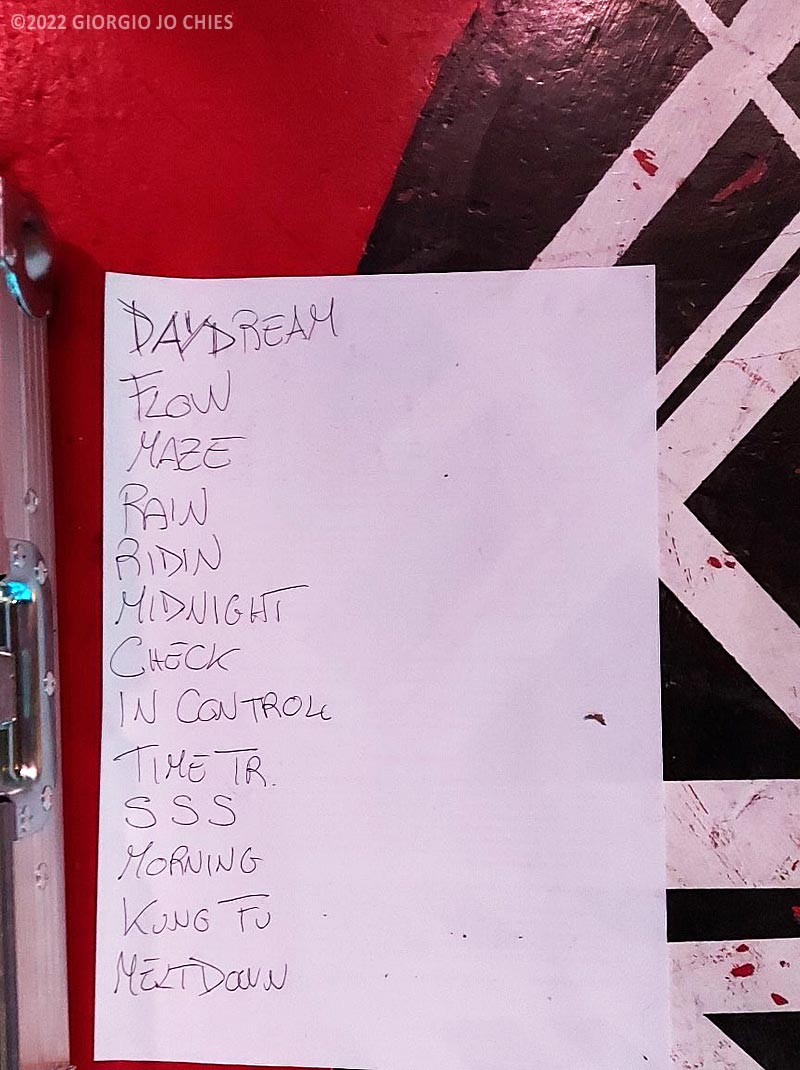 ©2022 GIORGIO JO CHIES
DAYDREAM
FLOW
MAZE
RAIN
RIDIN
MIDNIGHT
CHECK
IN CONTROL
TIME TR.
SSS
MORNING
KUNG FU
MELTDOWN